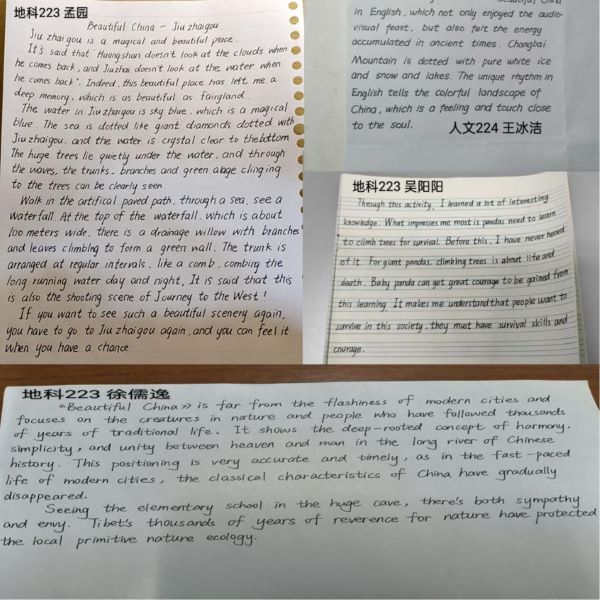 地科223 孟园
Beautiful China - Jiuzhaigou
Jiu zhaigou is a magical and beautiful place.
It's said that "Huangshan doesn't look at the clouds when
he comes back, and Jiuzhai doesn't look at the water when
he comes back". Indeed, this beautiful place has left me a
deep memory, which is as beautiful as fairyland.
The water in Jiuzhaigou is sky blue, which is a magical
blue. The sea is dotted like giant diamonds dotted with
Jiuzhaigou, and the water is crystal clear to the bottom.
The huge trees lie quietly under the water, and through
the waves, the trunks, branches and green algae clinging
to the trees can be clearly seen.
Walk in the artifical paved path, through a sea, see a
waterfall. At the top of the waterfall, which is about
100 meters wide, there is a drainage willow with branches
and leaves climbing to form a green wall. The trunk is
arranged at regular intervals, like a comb, combing the
long running water day and night, It is said that this
is also the shooting scene of Journey to the West!
If you want to see such a beautiful scenery again,
you have to go to Jiuzhaigou again, and you can feel it
when you have a chance.
in English, which not only enjoyed the audio-
visual feast, but also felt the energy
accumulated in ancient times. Changbai
Mountain is dotted with pure white ice
and snow and lakes. The unique rhythm in
English tells the colorful landscape of
China, which is a feeling and touch close
to the soul.
人文224 王冰洁
地科223 吴阳阳
Through this activity, I learned a lot of interesting
knowledge. What impresses me most is pandas need to learn
to climb trees for survival. Before this, I have never heard
of it. For giant pandas, climbing trees is about life and
death. Baby panda can get great courage to be gained from
this learning. It makes me understand that people want to
survive in this society, they must have survival skills and
courage.
地科223 徐儒逸
《Beautiful China》 is far from the flashiness of modern cities and
focuses on the creatures in nature and people who have followed thousands
of years of traditional life. It shows the deep-rooted concept of harmony,
simplicity, and unity between heaven and man in the long river of Chinese
history. This positioning is very accurate and timely, as in the fast-paced
life of modern cities, the classical characteristics of China have gradually
disappeared.
Seeing the elementary school in the huge cave, there's both sympathy
and envy. Tibet's thousands of years of reverence for nature have protected
the local primitive nature ecology.